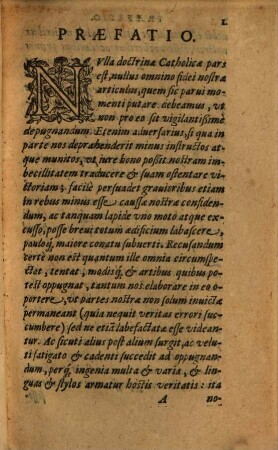 1.
PRÆFATIO.
NVlla doctrinæ Catholicæ pars
est, nullus omnino fidei nostræ
articulus, quem sic parui mo-
menti putare debeamus, vt
non pro eo sit vigilantissimè
depugnandum. Etenim aduersarius, si qua in
parte nos deprahenderit minus instructos at
que munitos, vt iure bono possit nostram im-
becillitatem traducere & suam ostentare vi-
ctoriam: facilè persuadet grauioribus etiam
in rebus minus esse causæ nostræ confiden-
dum, ac tanquam lapide vno moto atque ex-
cusso, posse breui totum ædificium labascere,
pauloq́, maiore conatu subuerti. Recusandum
certè non est quantum ille omnia circumspe-
ctat, tentat, modisq́, & artibus quibus po-
test oppugnat, tantum nos elaborare in eo o-
portere, vt partes nostræ non solum inuictæ
permaneant (quia nequit veritas errori suc-
cumbere) sed ne etiã labefactatæ esse videan-
tur. Ac sicuti alius post alium surgit, ac velu-
ti fatigato & cadenti succedit ad oppugnan-
dum, perq́, ingenia multa & varia, & lin-
guas & stylos armatur hostis veritatis: ita
A no-